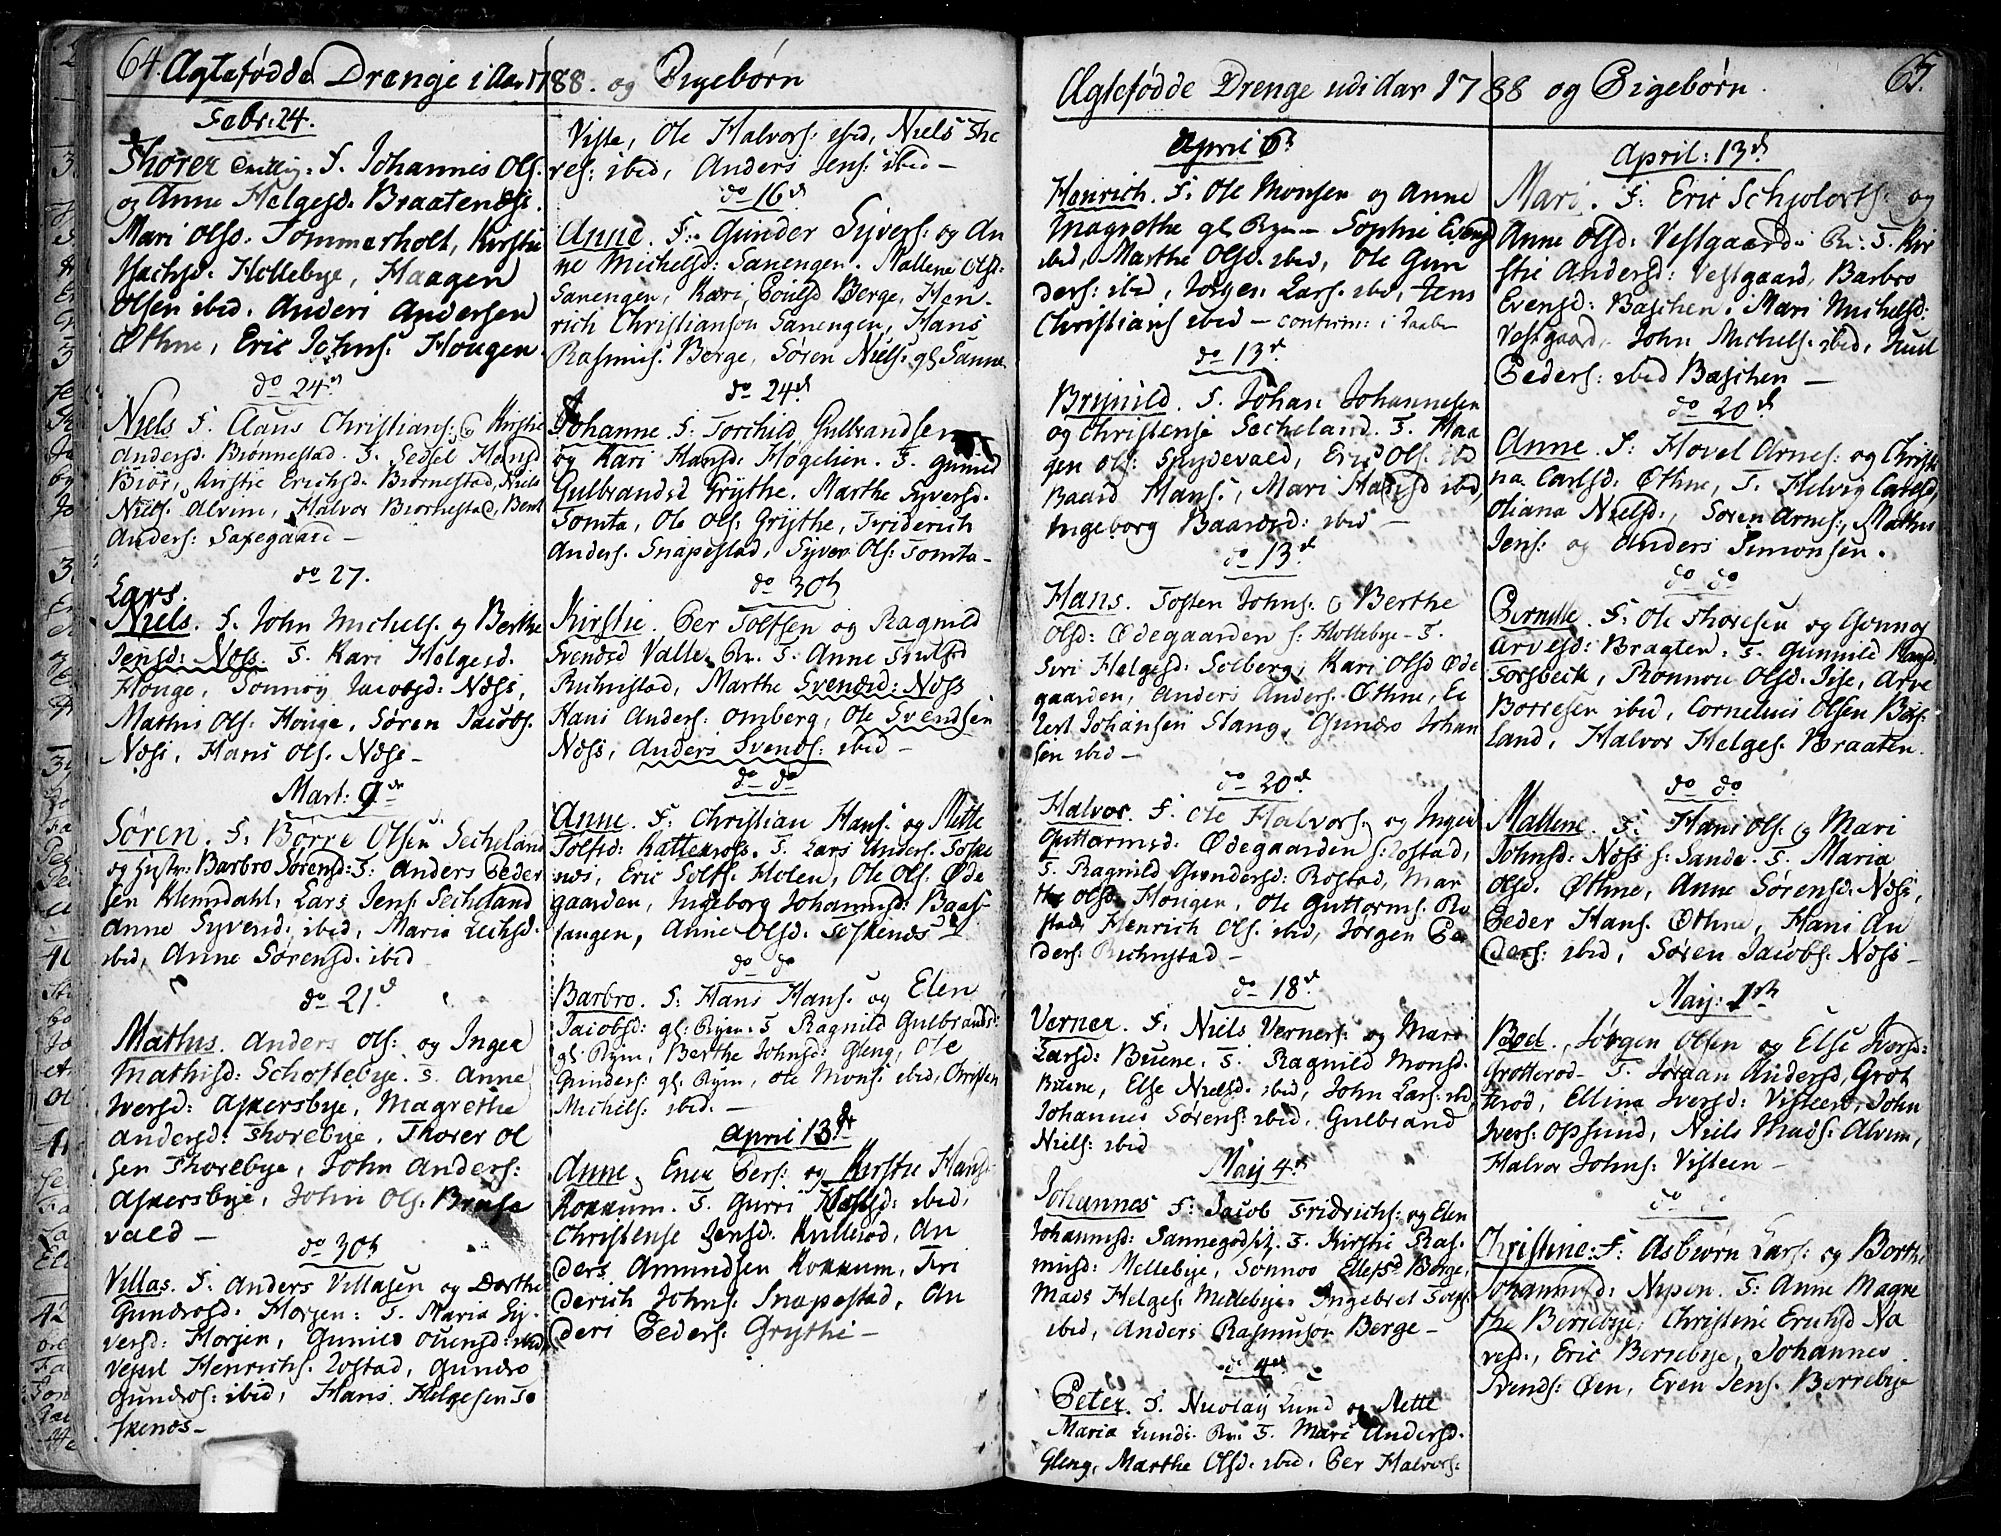 64. Ægtefødde Drenge i Aar 1788. og Pigebørn
Febr: 24.
Thorer F. Johannes Ols:
og Anne Helgesd. Braatenæsi.
Mari Olsd. Sommerholt, Kirstie
Isachsd. Hollebye, Haagen
Olsen ibid. Anders Andersen
Østhne, Eric Johns: Hougen
do 24
Niels F. Claus Christians: & Kirstie
Andersd. Biønnestad. F. Sedsel Hansd
Biør, Kirstie Erichsd. Biørnestad, Niels
Niels. Alvim, Halvor Biørnestad, Bent
Anders: Saxegaard –
do 27.
Lars.
Niels. F. John Michels. og Berthe
Jensd: Næss F. Kari Helgesd.
Houge, Tonnøy Jacobsd: Næss,
Mathis Ols: Houge, Søren Jacobs.
Næss, Hans Ols. Næss –
Mart: 9de
Søren. F: Børre Olsen Secheland
og Hustr: Barbro Sørensd: F: Anders Peder
sen Klemsdahl, Lars Jens: Secheland
Anne Syversd. ibid, Maria Lechsd.
ibid, Anne Sørensd. ibid
do 21
Mathis. Anders Ols: og Inger
Mathisd: Schoftebye. F. Anne
Iversd: Askersbye, Magrethe
Andersd: Thorebye. Thorer Ol
sen Thorebye, John Anders:
Askersbye, John Ols. Brese
vald –
do 30te
Villas. F. Anders Villasen og Dorthe
Gundrosd: Horgen: F. Maria Sy-
versd: Horgen, Gunild Ouensd: ibid
Vejul Henrichs. Rostad, Gundro
Gundros: ibid, Hans Helgesen To
skenæs –
Viste, Ole Halvors: ibid, Niels The
res: ibid, Anders Jens: ibid –
do 16d
Anne. F. Gunder Syvers: og An
ne Michelsd: Sanengen. Mallene Olsd:
Sanengen, Kari Poulsd Berge, Hen-
rich Christianson Sanengen, Hans
Rasmus: Berge, Søren Niels: gl Sanne
do 24d
Johanne. F. Torchild Gulbrandsen
og Kari Hansd: Høgelien. F. Gunild
Gulbrandsd Grythe. Marthe Syversd.
Tomta, Ole Ols: Grythe, Friderich
Anders. Snapestad, Syver Ols: Tomta –
do 30te
Kirstie. Per Tolfsen og Ragnild
Svendsd Valle. F. Anne Trulsd
Ruhnestad, Marthe Svendsd: Næss
Hans Anders: Omberg, Ole Svendsen
Næss, Anders Svends: ibid –
do do
Anne. F. Christian Hans: og Mette
Tolfsd: Katterøds. F. Lars Anders. Toske
næs, Eric Tolfs. Holen, Ole Ols. Øde
gaarden, Ingeborg Johannisd: Baas-
tangen, Anne Olsd. Toskenæs –
do do
Barbro. F: Hans Hans. og Elen
Jacobsd: gl: Ryen. F. Ragnild Gulbrandsd:
gl: Rym, Berthe Johnsd: Gleng, Ole
Gunders: gl: Rym, Ole Mons: ibid, Christen
Michels: ibid. –
April 13de
Anne, Ener Pers: og Kirstie Hansd
Kokkum. F. Gurri Hansd: ibid,
Christense Jensd: Kullerød, An
ders Amundsen Kokkum, Fri
derich Johns: Snapestad, An
ders Peders: Grythe –
Ægtefødde Drenge udi Aar 1788 og Pigebørn. 65.
April 6te
Henrich. F: Ole Monsen og Anne
Magrethe gl. Rym – Sophie
ibid, Marthe Olsd. ibid, Ole Gun
ders: ibid, Jørgen Lars. ibd, Jens
Christians ibid – confirm: i Jaabr
do 13d
Brynild. F. Johan Johannesen
og Christense Secheland. F. Haa
gen Ols: Spydevald, Eric Ols. ibd
Baard Hans:, Mari Hansd ibid,
Ingeborg Baardsd: ibid –
do 13d
Hans. Tosten Johns: & Berthe
Olsd: Ødegaarden f: Hollebye – F.
Siri Helgesd: Solberg, Kari Olsd Øde
gaarden, Anders Anders. Østhne, El
lert Johansen Stang, Gundro Johan
sen ibid –
do 20d
Halvor. F. Ole Halvors: og Inger
Guttormsd. Ødegaarden f: Rostad,
F. Ragnild Gundersd: Rostad, Mar
the Olsd. Hougen, Ole Guttorms. Ro
stad, Henrich Ols. ibid, Jørgen Pe
ders: Ruhnstad –
do 18d
Verner. F. Niels Verners: og Mari
Larsd: Buene. F. Ragnild Monsd.
Buene, Else Nielsd. ibid, John Lars: ibd,
Johannes Sørens: ibid, Gulbrand
Niels: ibid
Maij 4de
Johannes F: Jacob Fridrichs: og Elen
Johannisd: Sannegods. F. Kirstie Ras-
musd: Mellebye, Sonnoo Ellefsd Berge,
Mads Helges: Mellebye, Ingebret Tolfs
ibid, Anders Rasmuson Berge –
do 4de
Peter. F. Nicolaij Lund og Mette
Maria Lunds. F. Mari Andersd.
Gleng, Marthe Olsd: ibid. Per Halvors:
April: 13d.
Mari. F: Eric Schjolerts: og
Anne Olsd: Vestgaard. F. Kir
stie Andersd: Vestgaard, Barbro
Evensd: Baschen. Mari Michelsd:
Vestgaard. John Michels. ibid, Juul
Peders: ibid Baschen –
do 20d
Anne F: Hovel Arnes: og Christi
na Carlsd: Østhne, F. Helvig Carlsd,
Oliana Nielsd:, Søren Arnes:, Mathis
Jens: og Anders Simonsen.
do do
Pernille. F: Ole Thoresen og Gonnor
Arvesd: Braaten: F. Gunnild Hansd:
Torsbeck, Rønnou Olsd. Jise, Arve
Borresen ibid, Cornelius Olsen Bøs-
land, Halvor Helges. Braaten.
do do
Mallene. F: Hans Ols. & Mari
Johnsd: Næss f: Sande. F. Maria
Olsd. Østhne, Anne Sørensd: Næss,
Peder Hans. Østhne, Hans An
ders: ibid, Søren Jacobs: Næss –
Maij: 1st
Boel, Jørgen Olsen og Else Iversd:
Grotterød – F. Jørgan Andersd, Grot
terød, Ellina Iversd: Visteen, John
Ivers: Opsund, Niels Mads: Alvim,
Halvor Johns: Visteen –
do
Christine: F: Asbiørn Lars: og Borthe
Johannisd: Nypen. F: Anne Magre
the Berrebye, Christine Erichsd Na
resd., Eric Berrebye, Johannes
Svends: Øen, Even Jens. Berrebye